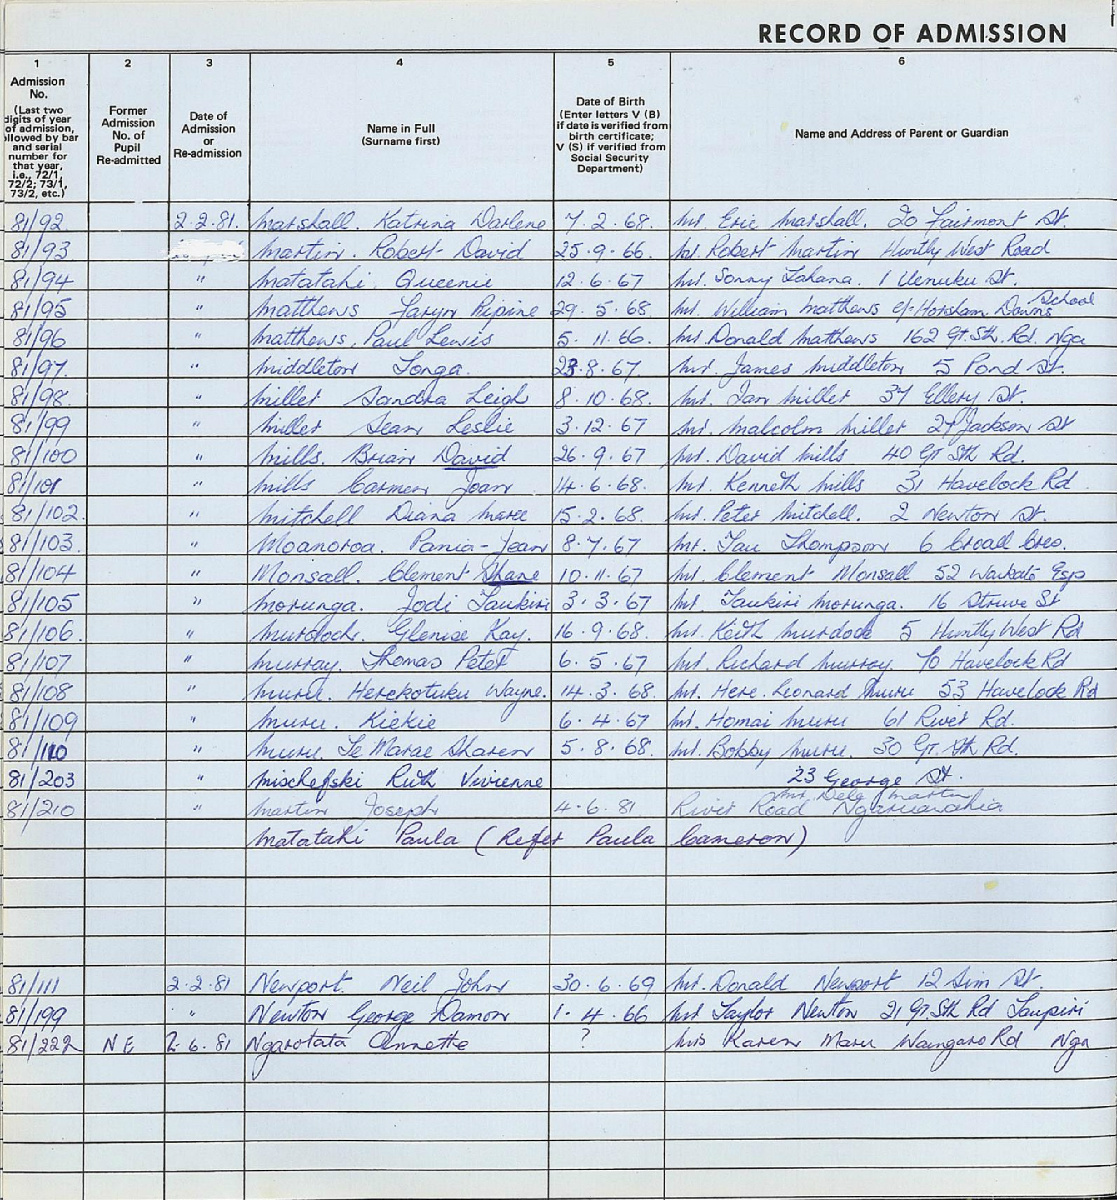 RECORD OF ADMISSION
1 2 3 4 5 6
Admission No. (Last two digits of year of admission, followed by bar and serial number for that year, i.e., 72/1 72/2; 73/1, 73/2, etc.)
Former Admission No. of Pupil Re-admitted
Date of Admission or Re-admission
Name in Full (Surname first)
Date of Birth (Enter letters V (B) if date is verified from birth certificate; V (S) if verified from Social Security Department)
Name and Address of Parent or Guardian
81/92 2.2.81. Marshall. Katrina Darlene 7.2.68. Mr. Eric Marshall. 20 Fairmont St.
81/93 Martin. Robert David 25.9.66. Mr. Robert Martin Huntly West Road
81/94 " Matataki Queenie 12.6.67 Mr. Sonny Tahana. 1 Uenuku St.
81/95 " Matthews Taryn Ripine 29.5.68. Mr. William Matthews c/- Horsham Downs School
81/96 " Matthews. Paul Lewis 5.11.66. Mr Donald Matthews 162 Gt. Sth. Rd. Nga
81/97. " Middleton Tonga. 23.8.67 Mr. James Middleton 5 Pond St.
81/98. " Miller Sandra Leigh 8.10.68. Mr. Ian Miller 37 Ellery St.
81/99 " Miller Sean Leslie 3.12.67 Mr. Malcolm Miller 27 Jackson St
81/100 " Mills. Brian David 26.9.67 Mr. David Mills 40 Gt Sth Rd.
81/101 " Mills Carmen Joan 14.6.68. Mr. Kenneth Mills 31 Havelock Rd
81/102. " Mitchell Diana Maree 15.2.68. Mr. Peter Mitchell. 2 Newton St.
81/103. " Moanoroa. Pania-Jean 8.7.67 Mr. Tau Thompson 6 Croad Cres.
81/104 " Monsall. Clement Shane 10.11.67 Mr. Clement Monsall 52 Waikato Esp
81/105 " Morunga. Jodi Taukiri 3.3.67 Mr. Taukiri Morunga. 16 Struve St
81/106 " Murdoch. Glenise Kay. 16.9.68. Mr. Keith Murdock 5 Huntly West Rd
81/107 " Murray. Thomas Peter 6.5.67 Mr. Richard Murray. 70 Havelock Rd
81/108 " Muru. Herekotuku Wayne. 14.3.68. Mr. Here. Leonard Muru 53 Havelock Rd
81/109 " Muru. Kiekie 6.4.67 Mr. Homai Muru 61 River Rd.
81/110 " Muru Te Marae Sharen 5.8.68. Mr. Bobby Muru. 30 Gt. Sth Rd.
81/203 " Mischefski Ruth Vivienne 23 George St.
81/210 " Martin Joseph 4.6.81 Mr. Dale Martin River Road Ngaruawahia
Matataki Paula (Refer Paula Cameron)
81/111 2.2.81 Newport. Neil John 30.6.69 Mr. Donald Newport 12 Sim St.
81/199 " Newton George Damon 1.4.66 Mr Taylor Newton 21 Gt Sth Rd Taupiri
81/222 NE 2.6.81 Ngarotata Annette ? Mrs Karen Maru Waingaro Rd Nga